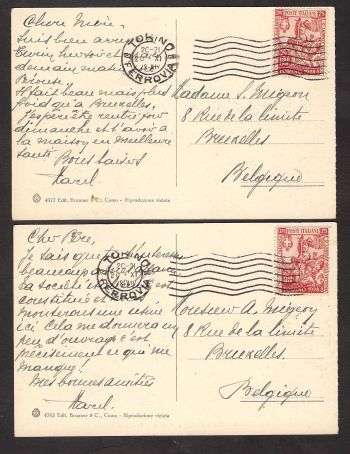 Chère Mère,
Suis bien arrivé
Turin hier soir et
demain matin
Pérouse.
Il fait beau mais plus
froid qu'à Bruxelles.
J'espère être rentré pour
dimanche et t'avoir à
la maison en meilleure
santé
Bons baisers
Marcel.
TORINO
20-21
FERROVIA
POSTE ITALIANE
Madame S. Mignon
8 Rue de la limite
Bruxelles.
Belgique
4572 Edit. Brunner & C., Como - Riproduzione vietata
Cher Père,
Je sais que
beaucoup
la société
constituée et
monterons une usine
ici. Cela me donnera un
peu d'ouvrage c'est
précisément ce qui me
manque!
Mes bonnes amitiés
Marcel.
TORINO
20-21
FERROVIA
POSTE ITALIANE
Monsieur A. Mignon
8 Rue de la limite
Bruxelles.
Belgique
Edit. Brunner & C., Como - Riproduzione vietata